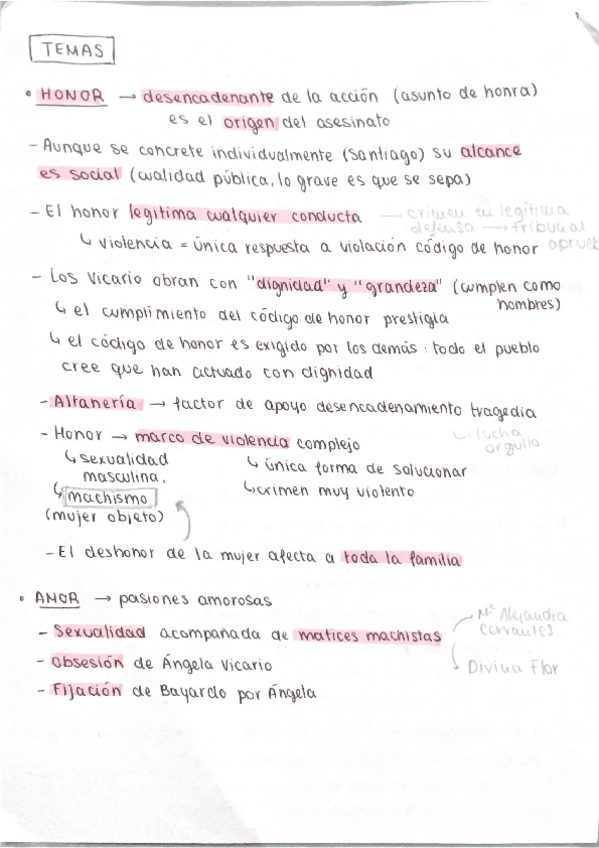 TEMAS
• HONOR → desencadenante de la acción (asunto de honra)
es el origen del asesinato
- Aunque se concrete individualmente (Santiago) su alcance
es social (cualidad pública, lo grave es que se sepa)
- El honor legitima cualquier conducta → crimen en legítima
defensa → tribunal
↳ violencia = única respuesta a violación código de honor
- Los Vicario obran con "dignidad" y "grandeza" (cumplen como
hombres)
↳ el cumplimiento del código de honor prestigia
↳ el código de honor es exigido por los demás: todo el pueblo
cree que han actuado con dignidad
- Altanería → factor de apoyo desencadenamiento tragedia
↳ lucha
orgullo
- Honor → marco de violencia complejo
↳ sexualidad
masculina,
↳ machismo
(mujer objeto)
↳ única forma de solucionar
↳ crimen muy violento
- El deshonor de la mujer afecta a toda la familia
• AMOR → pasiones amorosas
- Sexualidad acompañada de matices machistas
Mª Alejandra
Cervantes
Divina Flor
- Obsesión de Ángela Vicario
- Fijación de Bayardo por Ángela